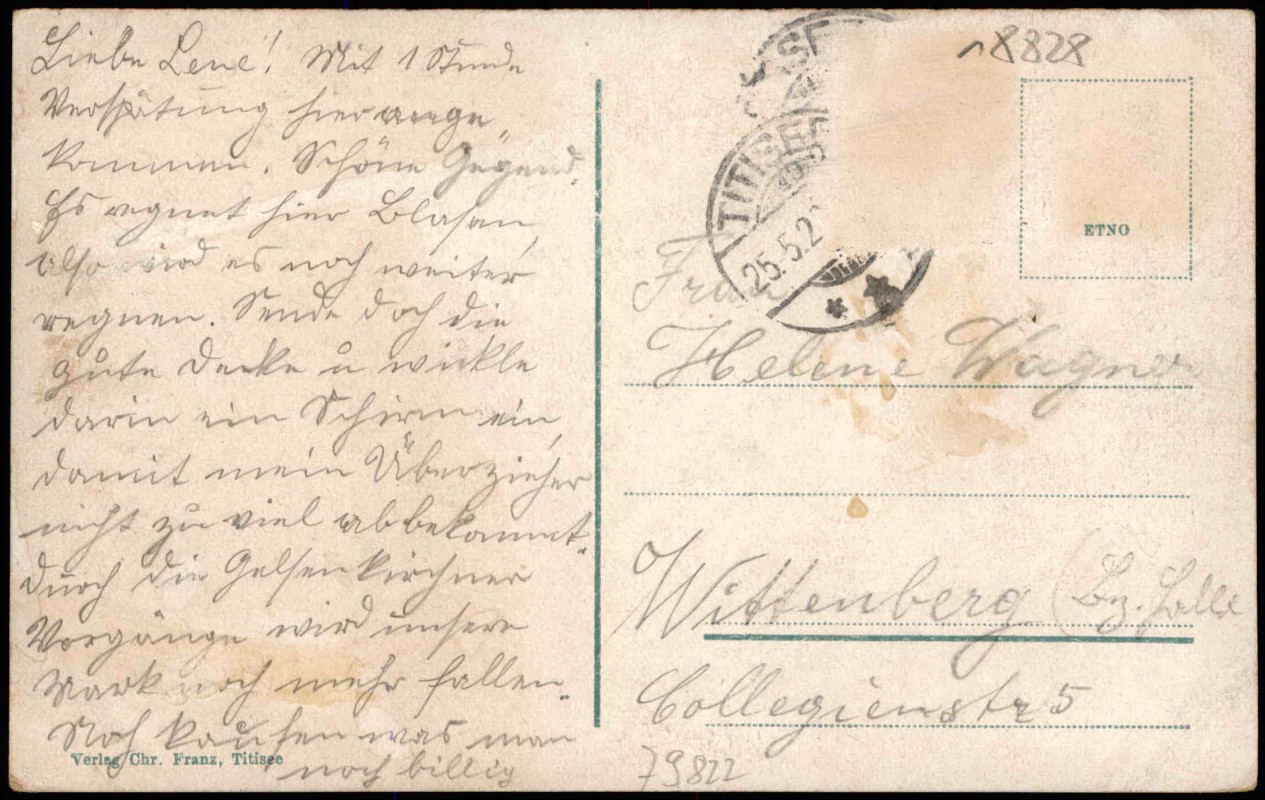 Liebe Lene! Mit 1 Stunde
Verspätung hier ange„
kommen. Schöne Gegend.
Es regnet hier Blasen,
also wird es noch weiter
regnen. Sende doch die
gute Decke u wickle
darin ein Schirm ein,
damit mein Überzieher
nicht zu viel abbekommt.
Durch die Gelsenkirchner
Vorgänge wird unsere
Mark noch mehr fallen.
Noch kaufen was man
noch billig
Verlag Chr. Franz, Titisee
18828
TITISEE
25.5.2
ETNO
Frau
Helene Wagner
Wittenberg (Bz. Halle
Collegienstr 5
79822